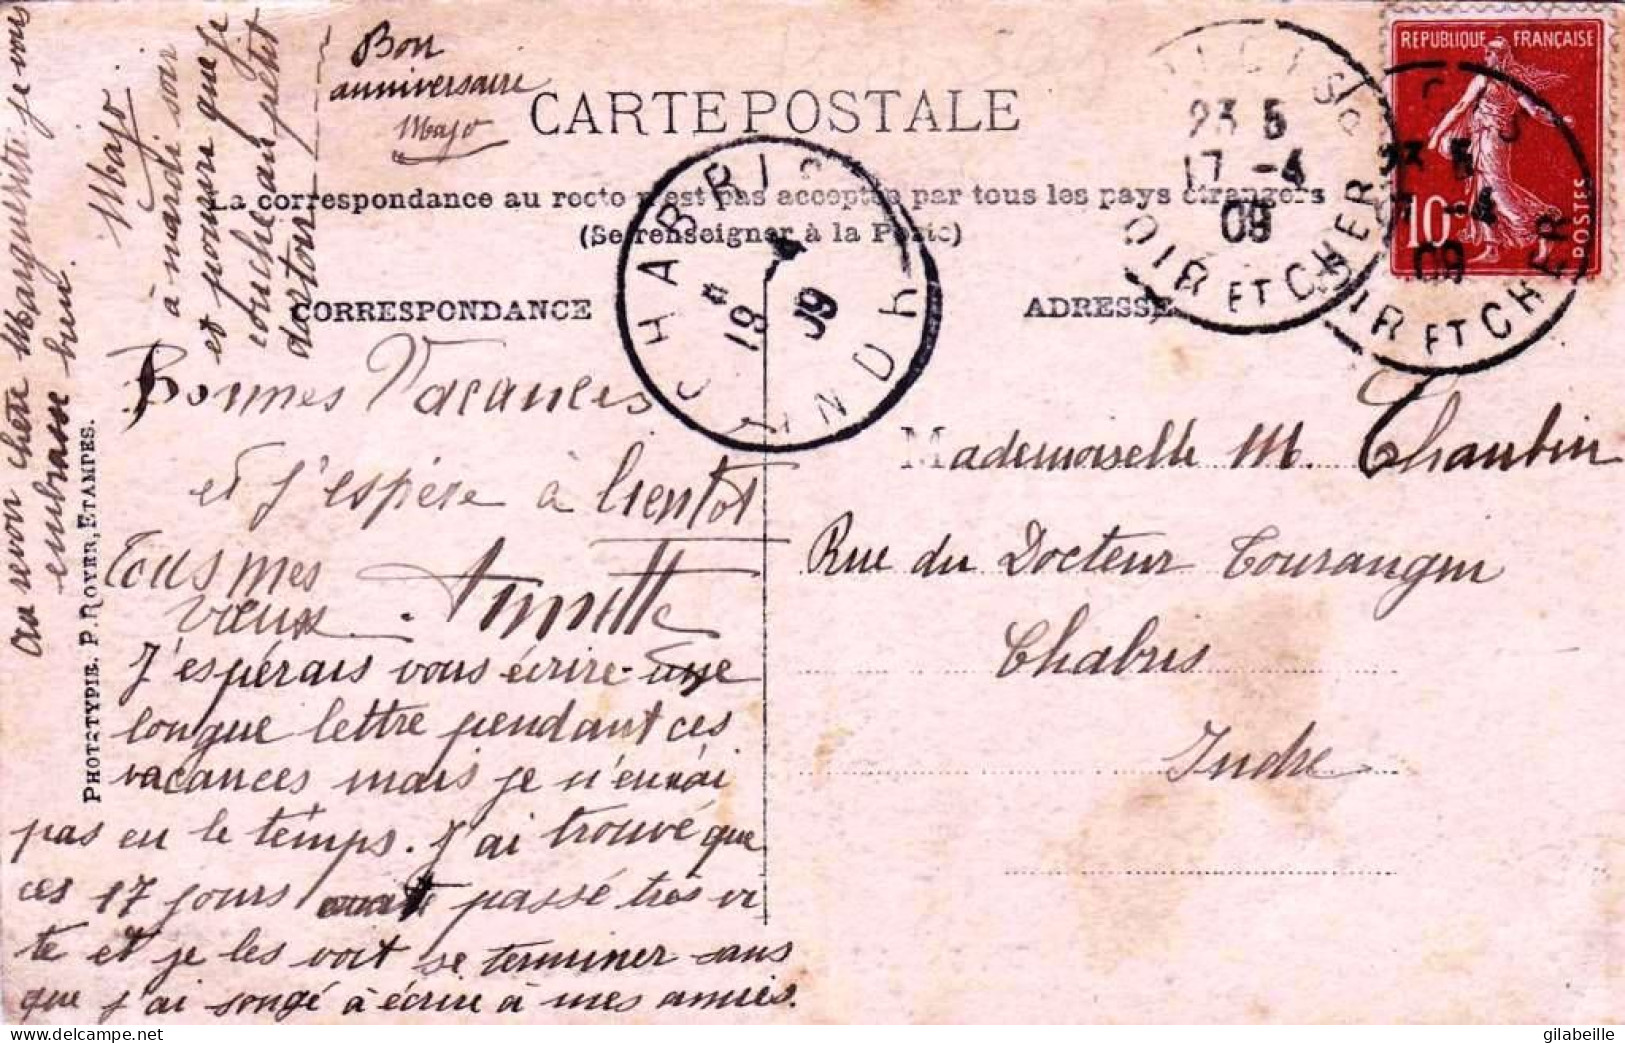 Bon
anniversaire
Majo
CARTE POSTALE
La correspondance au recto n'est pas acceptée par tous les pays étrangers
(Se renseigner à la Poste)
CORRESPONDANCE
ADRESSE
REPUBLIQUE FRANÇAISE
10
POSTES
23 5
17 -4
09
LOIR ET CHER
23 5
17 -4
09
LOIR ET CHER
CHABRIS
19 4
09
INDRE
Bonnes Vacances
et j'espère à bientôt
Tous mes
vœux.
J'espérais vous écrire une
longue lettre pendant ces
vacances mais je n'en ai
pas eu le temps. J'ai trouvé que
ces 17 jours ont passé très vi
te et je les voit se terminer sans
que j'ai songé à écrire à mes amies.
Au revoir chère Marguerite je vous
embrasse bien.
Majo
à mardi soir
et pourvu que je
couche au petit
dortoir
PHOTOTYPIE. P. ROYER, ETAMPES.
Mademoiselle M. Chaubin
Rue du Docteur Tourangin
Chabris
Indre
gilabeille